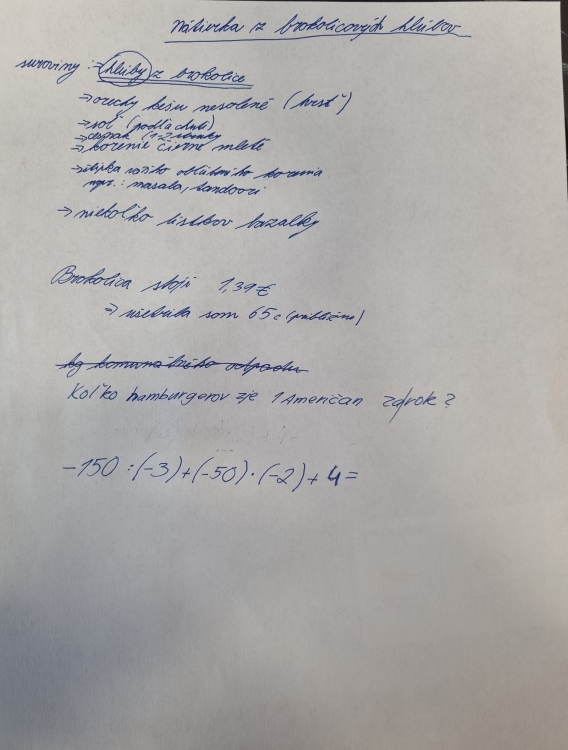 Nátierka z brokolicových hlúbov
suroviny :→ hlúby z brokolice
→ orechy kešu nesolené (hrsť)
→ soľ (podľa chuti)
→ cesnak (1-2 strúčky
→ korenie čierne mleté
→ štipka vášho obľúbeného korenia
napr.: masala, tandoori
→ niekoľko lístkov bazalky
Brokolica stojí 1,39€
→ ušetrila som 65c (približne)
kg komunálneho odpadu
Koľko hamburgerov zje 1 Američan zdrok?
-150 : (-3) + (-50) · (-2) + 4 =